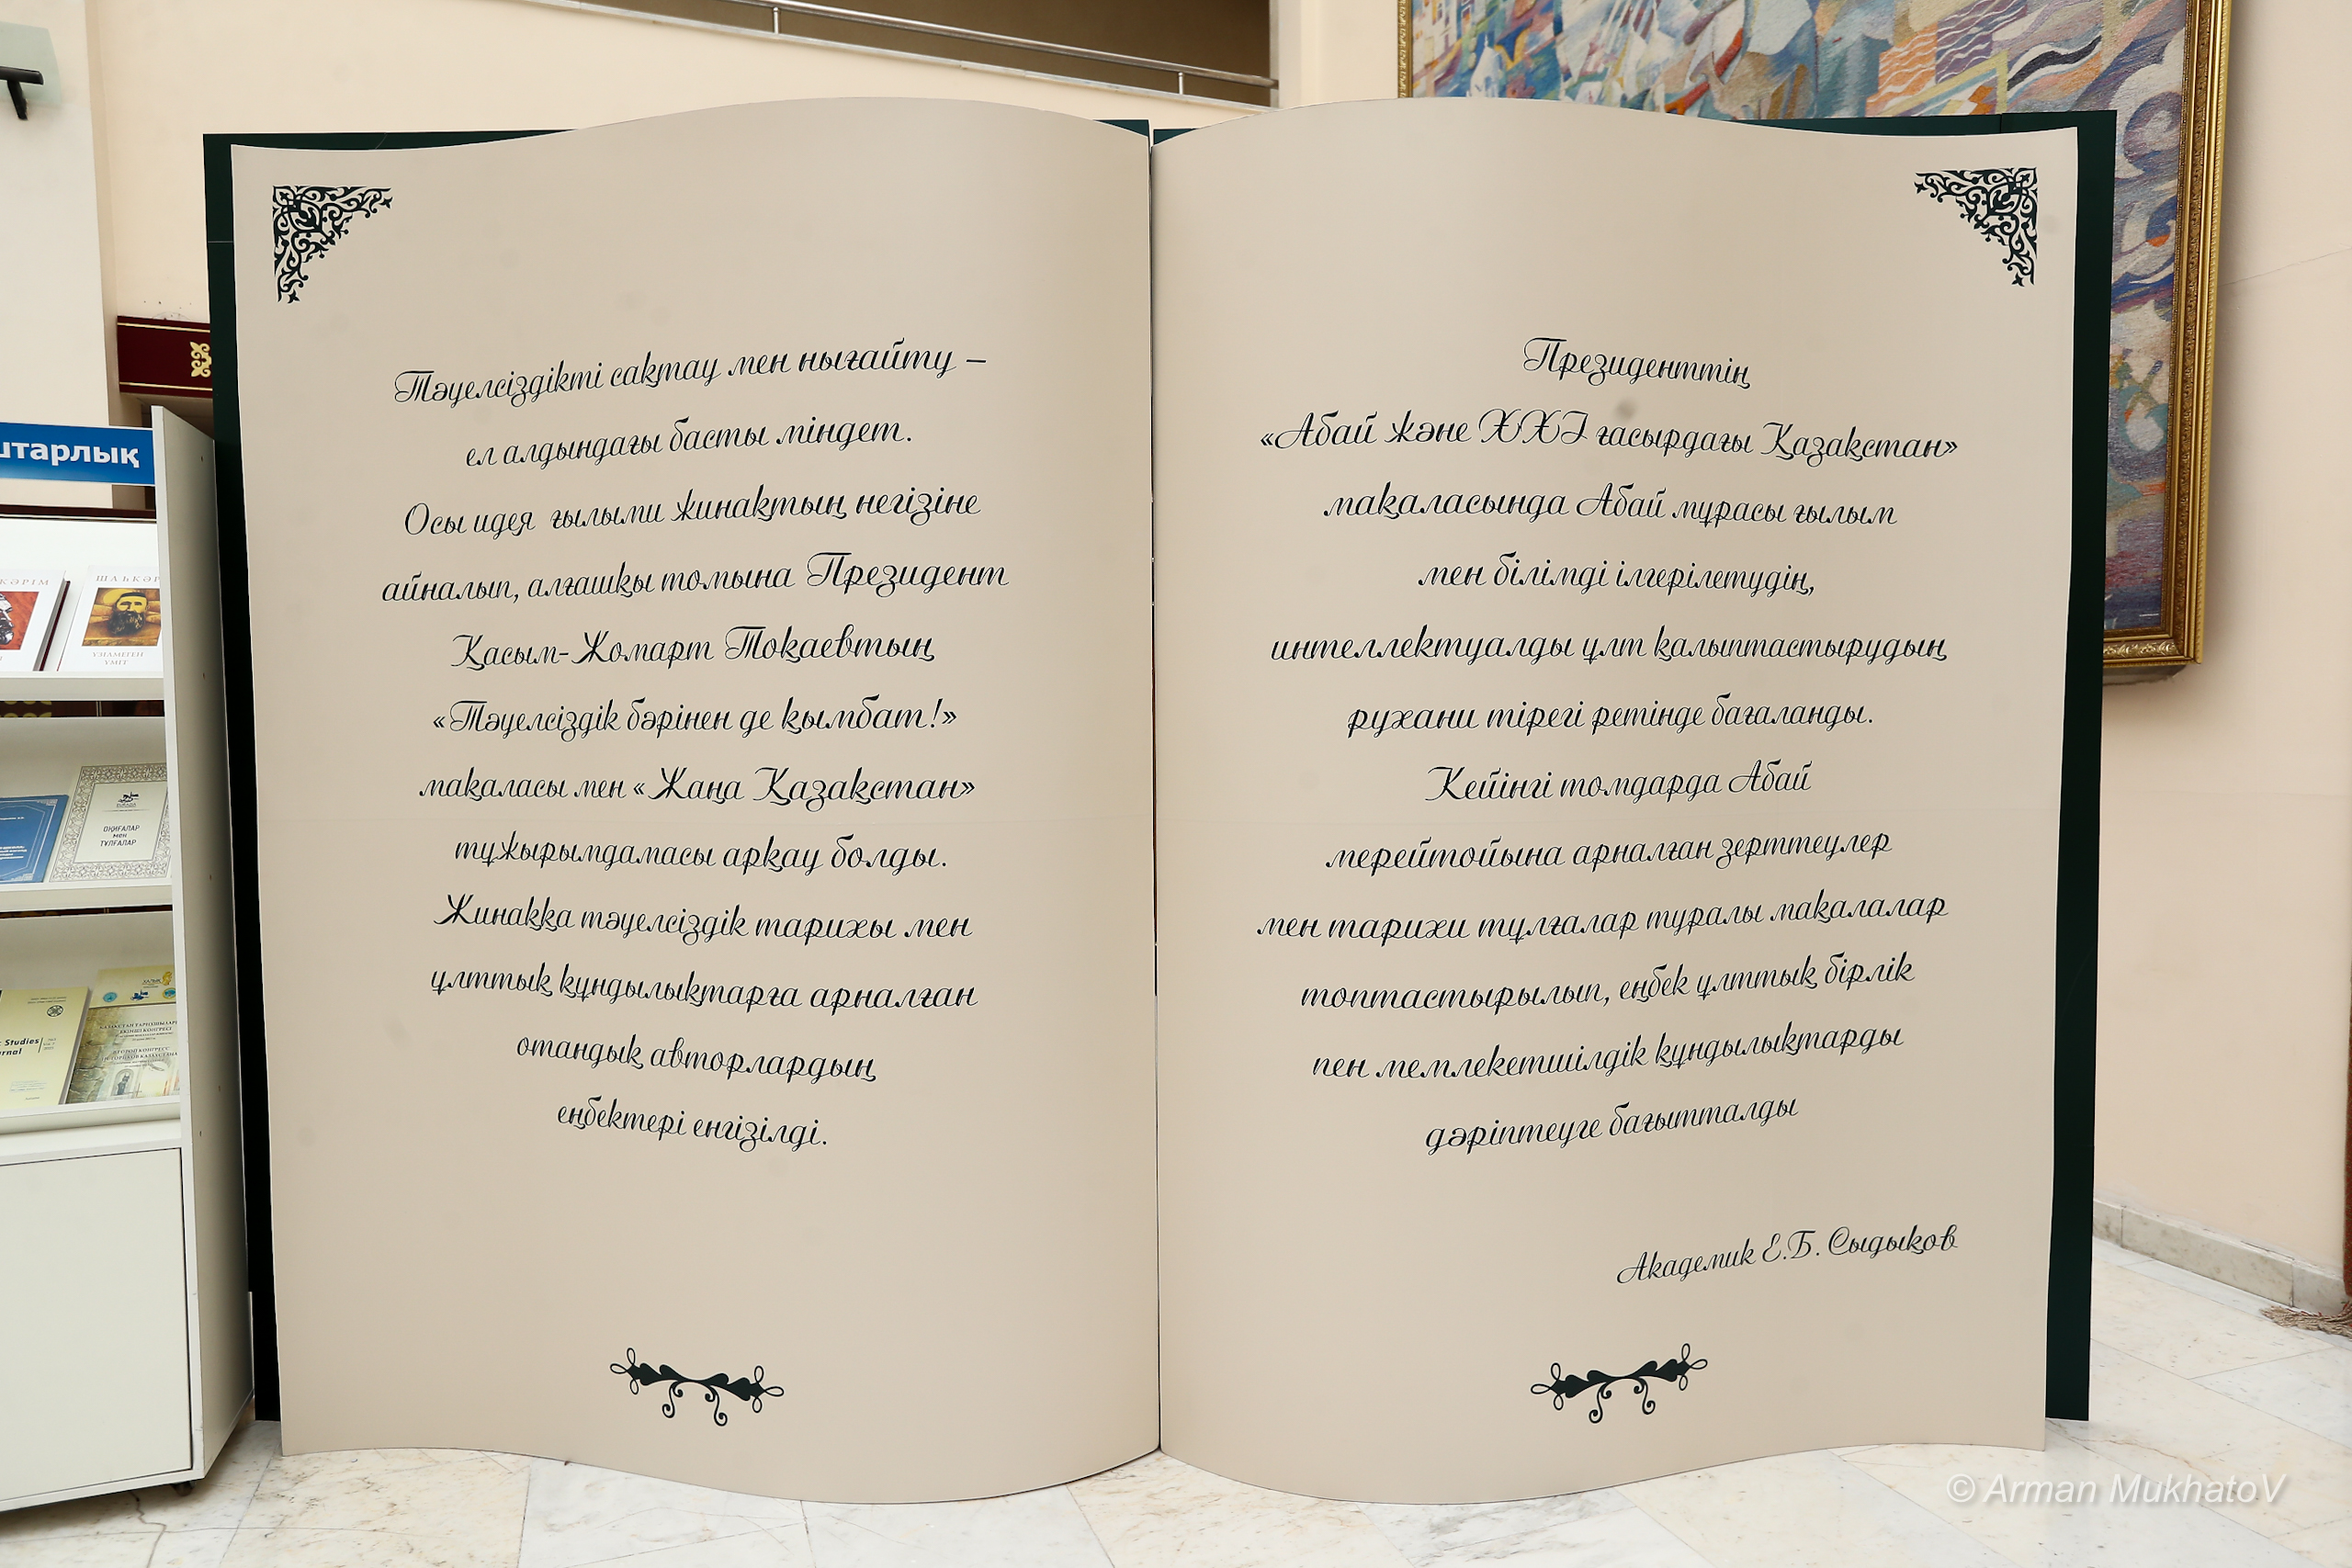 Тәуелсіздікті сақтау мен нығайту –
ел алдындағы басты міндет.
Осы идея ғылыми жинақтың негізіне
айналып, алғашқы томына Президент
Қасым-Жомарт Тоқаевтың
«Тәуелсіздік бәрінен де қымбат!»
мақаласы мен «Жаңа Қазақстан»
тұжырымдамасы арқау болды.
Жинаққа тәуелсіздік тарихы мен
ұлттық құндылықтарға арналған
отандық авторлардың
еңбектері енгізілді.
Президенттің
«Абай және XXI ғасырдағы Қазақстан»
мақаласында Абай мұрасы ғылым
мен білімді ілгерілетудің,
интеллектуалды ұлт қалыптастырудың
рухани тірегі ретінде бағаланды.
Кейінгі томдарда Абай
мерейтойына арналған зерттеулер
мен тарихи тұлғалар туралы мақалалар
топтастырылып, еңбек ұлттық бірлік
пен мемлекетшілдік құндылықтарды
дәріптеуге бағытталды
Академик Е.Б. Сыдықов
штарлық
ОҚИҒАЛАР
мен
ТҰЛҒАЛАР
Studies
© Arman MukhatoV